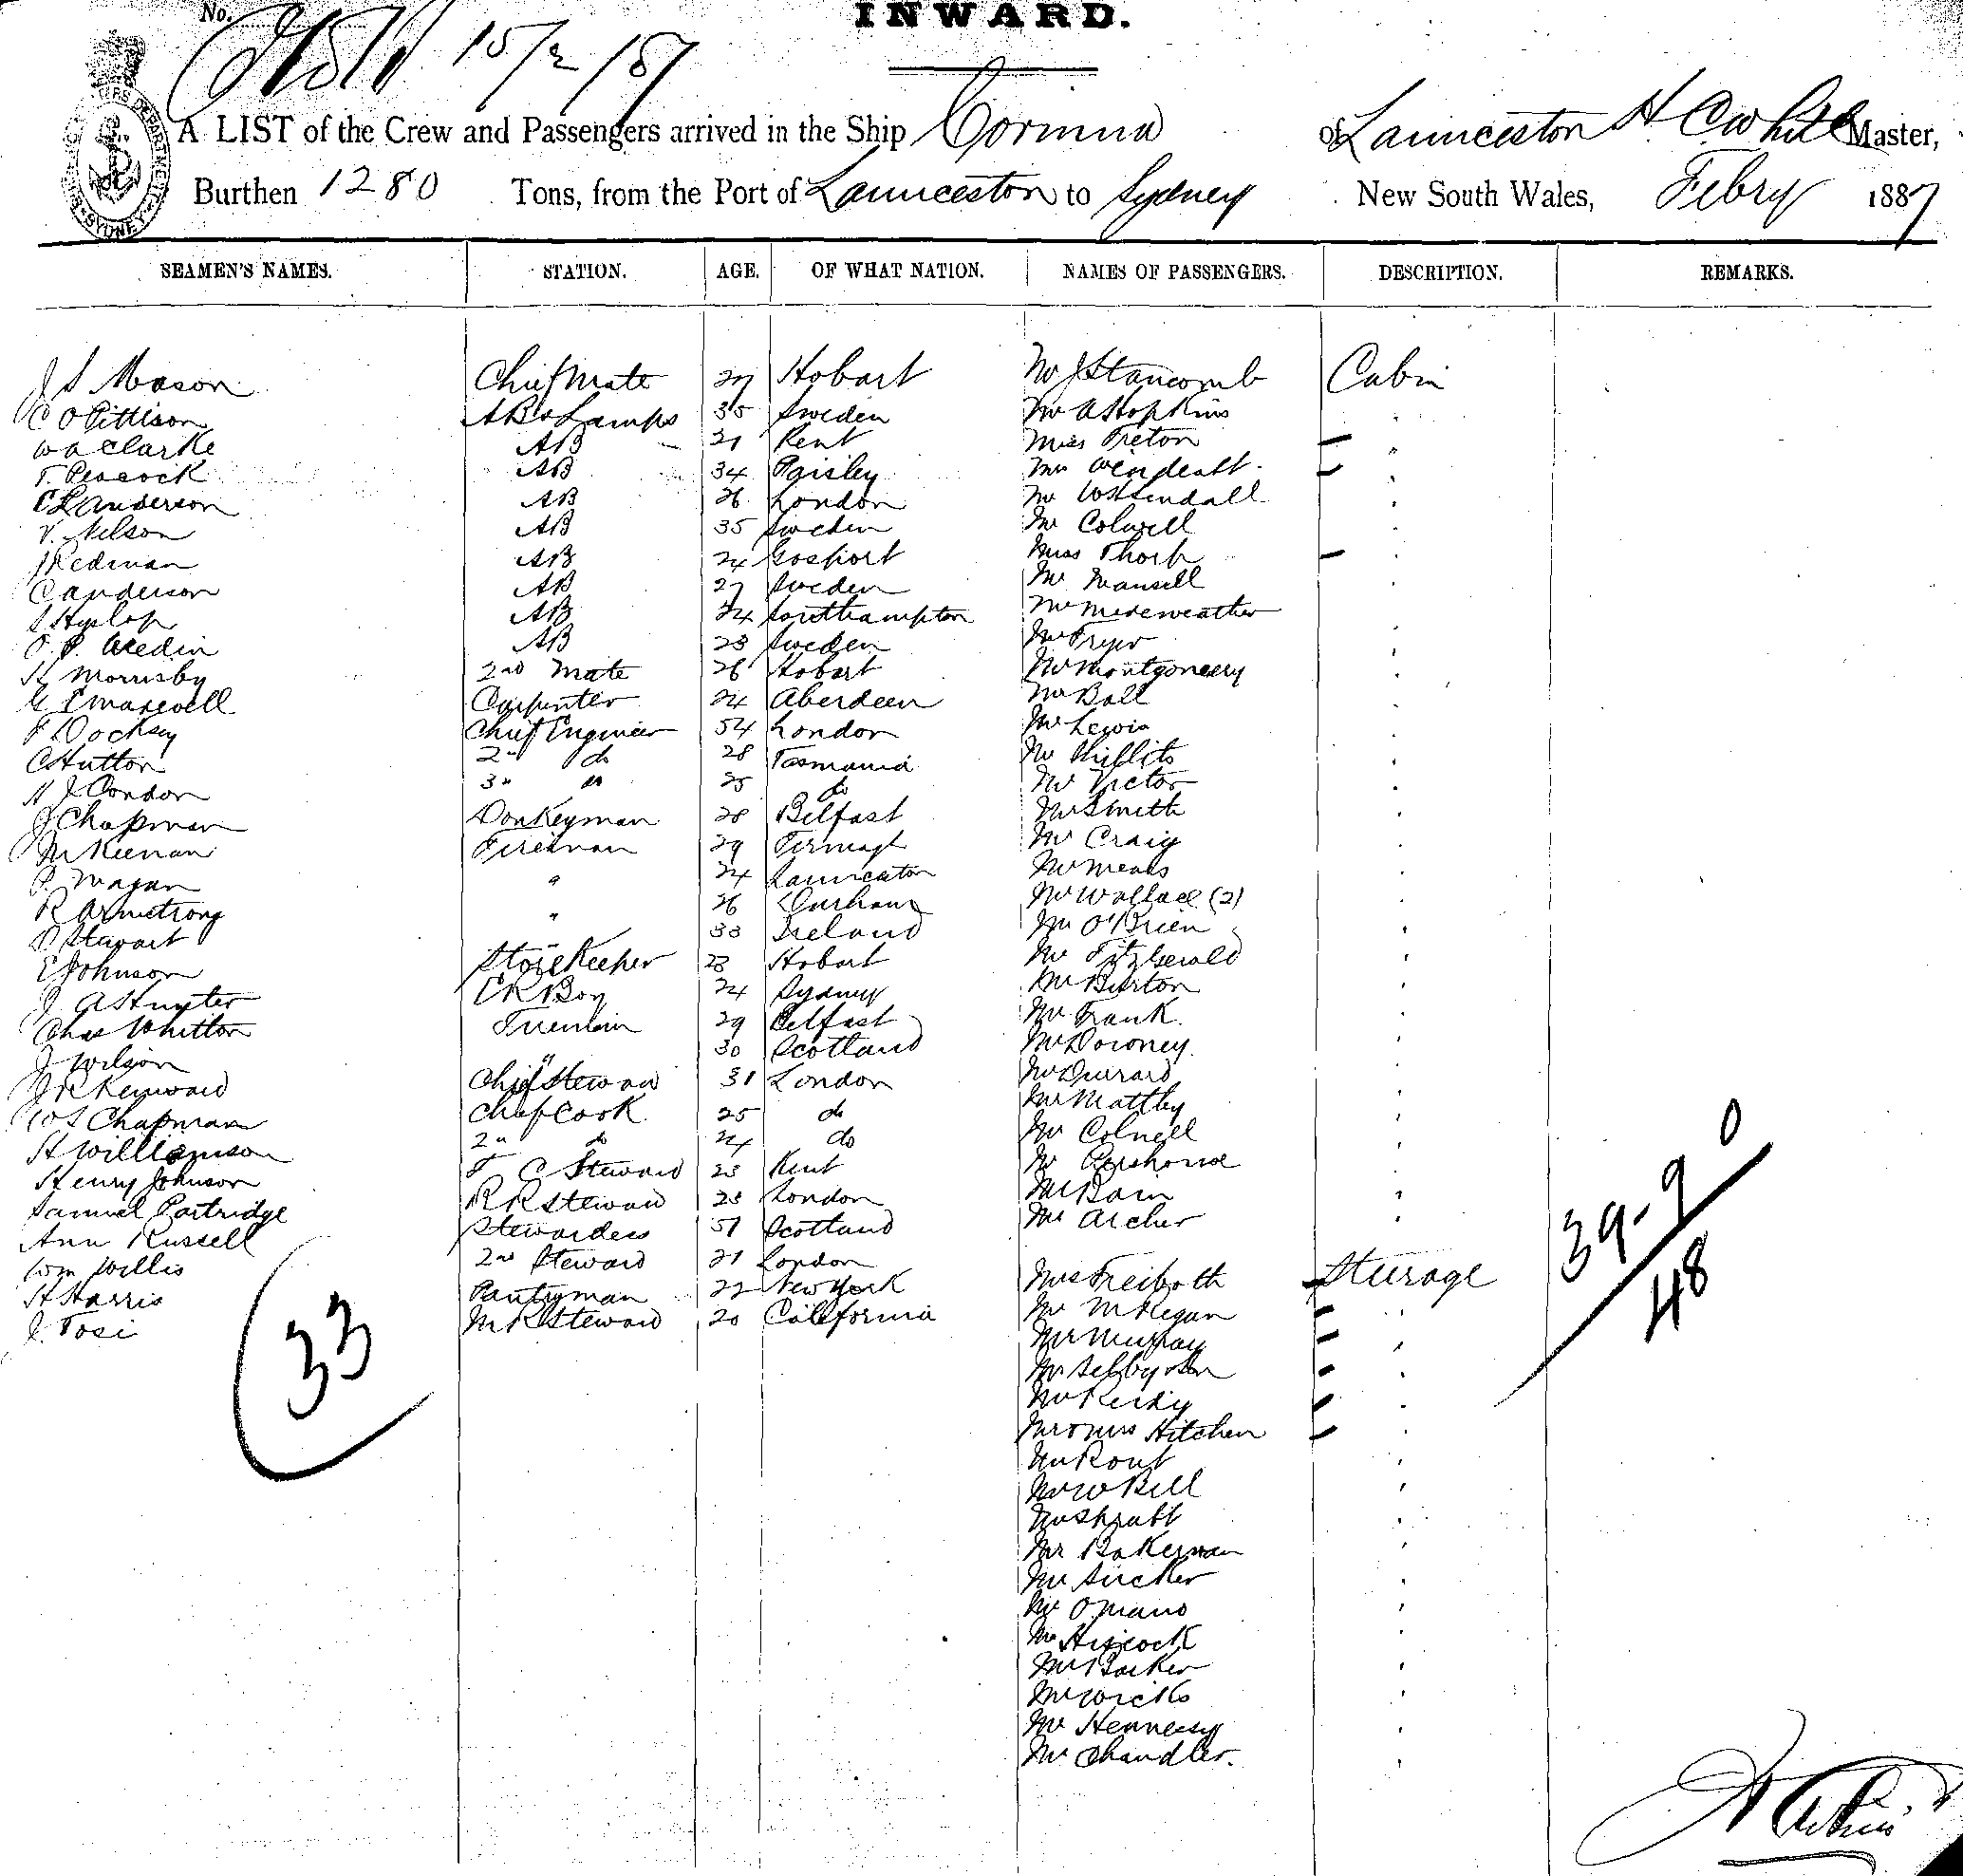 No.
INWARD.
15/2/87
A LIST of the Crew and Passengers arrived in the Ship Corinna of Launceston H C White Master,
Burthen 1280 Tons, from the Port of Launceston to Sydney New South Wales, Febry 1887
SEAMEN'S NAMES. STATION. AGE. OF WHAT NATION. NAMES OF PASSENGERS. DESCRIPTION. REMARKS.
J S Mason Chief Mate 27 Hobart Mr J Stancomb Cabin
C O Pittison AB & Lamps 35 Sweden Mr A Hopkins
W A Clarke AB 21 Kent Miss Freton
T. Peacock AB 34 Paisley Mrs Wendeatt
C L Anderson AB 26 London Mr W Kendall
V. Nelson AB 35 Sweden Mr Colwell
J Redman AB 24 Gosport Miss Thorp
C Anderson AB 27 Sweden Mr Mansell
S Hyslop AB 24 Southampton Mr Mereweather
O. P. Wedin AB 23 Sweden Mr Fryer
H Morrisby 2nd Mate 26 Hobart Mr Montgomery
G E Maxwell Carpenter 24 Aberdeen Mr Ball
F Docksey Chief Engineer 54 London Mr Lewis
C Hutton 2" do 28 Tasmania Mr Phillits
H J Condon 3" do 25 do Mr Victor
J Chapman Donkeyman 28 Belfast Mr Smith
M Keenan Fireman 29 Mr Craig
P. Magan " 24 Launceston Mr Means
R Armstrong " 26 Durham Mr Wallace (2)
P Stewart " 33 Ireland Mr O'Brien
E Johnson Storekeeper 23 Hobart Mr Fitzgerald
J A Hunter E R Boy 24 Sydney Mr Burton
Chas Whitton Fireman 29 Belfast Mr Frank.
J Wilson " 30 Scotland Mr Downey.
J R Kenward Chief Steward 31 London Mr Durrard
W S Chapman Chief Cook 25 do Mr Mattley
H Williamson 2" do 24 do Mr Colnell
Henry Johnson F C Steward 23 Kent Mr
Samuel Partridge R R Steward 23 London Mr Bain
Ann Russell Stewardess 51 Scotland Mr Archer
Wm Willis 2nd Steward 21 London
H Harris Pantryman 22 New York Mrs Freiboth Steerage
J. Tosi M R Steward 20 California Mr McKegan
Mr Murray
Mr Selby & Son
Mr Reidy
Mr & Mrs Hitchen
Mr Rout
Mr W Bell
Mr Spratt
Mr Bakerman
Mr Sucker
Mr Omano
Mr Hiscock
Mr Barker
Mr Wicks
Mr Hennessy
Mr Chandler.
33
39-9 0
48